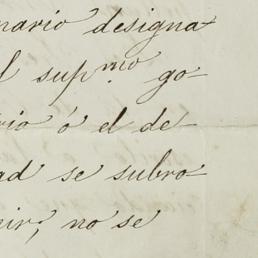 nario designa
l sup.mo go
rio ó el de
ad se subro
nir, no se